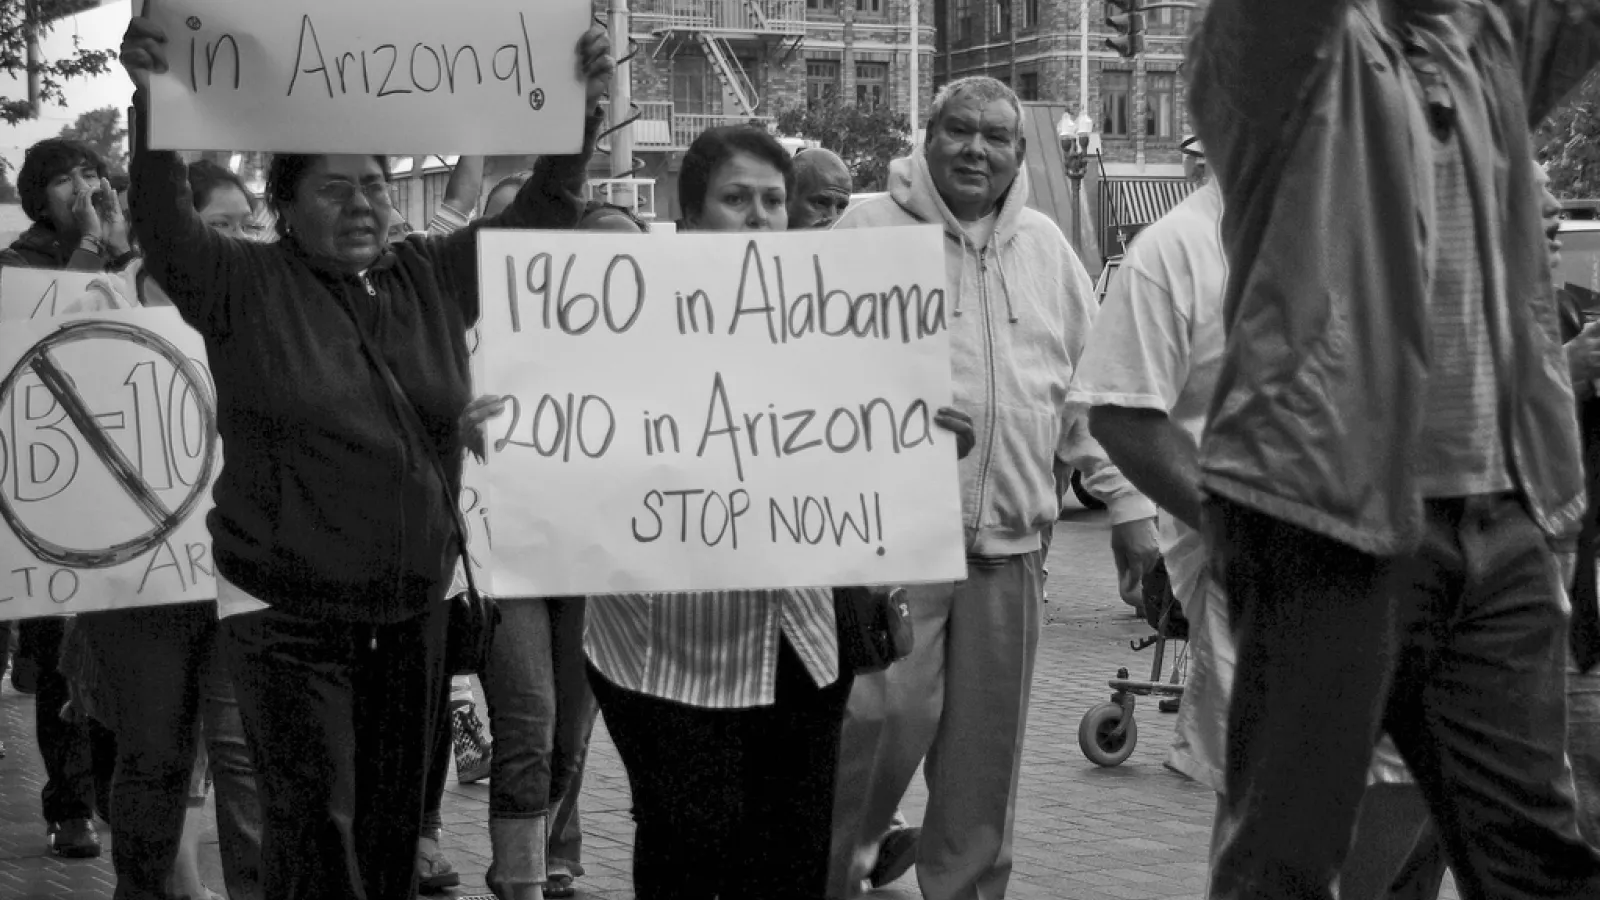 in Arizona!
1960 in Alabama
2010 in Arizona
STOP NOW!
B-10
TO AR